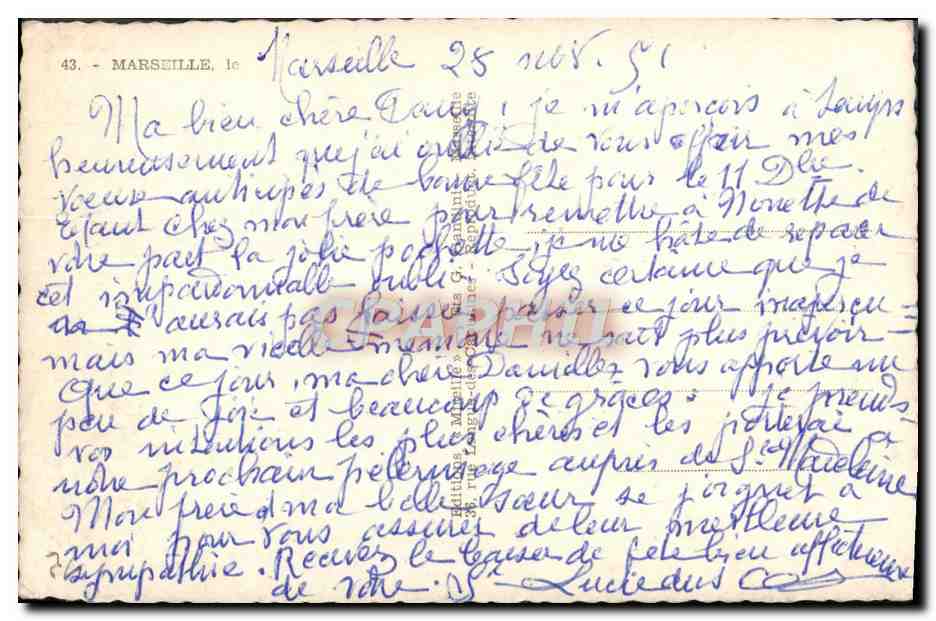 43. - MARSEILLE, le Marseille 28 nov. 51
Ma bien chère Dany, je m'aperçois à temps
heureusement que j'ai oublié de vous offrir mes
voeux anticipés de bonne fête pour le 11 Dbre.
Etant chez mon frère pour remettre à Nonette de
votre part la jolie pochette, je me hâte de réparer
cet impardonnable oubli. Soyez certaine que je
n' aurais pas laissé passer ce jour inaperçu
mais ma vieille mémoire ne sait plus prévoir
Que ce jour, ma chère Danielle, vous apporte un
peu de joie et beaucoup de grâces. je prends
vos intentions les plus chères et les porterai à
notre prochain pélerinage auprès de Ste Madeleine
Mon frère et ma belle soeur se joignent à
moi pour vous assurer de leur meilleure
sympathie. Recevez le baiser de fête bien affectueux
de votre Lucie
Editions Mireille Ets G. Marseille
36, rue Longue-des-Capucines - Reproduction
CPARHU